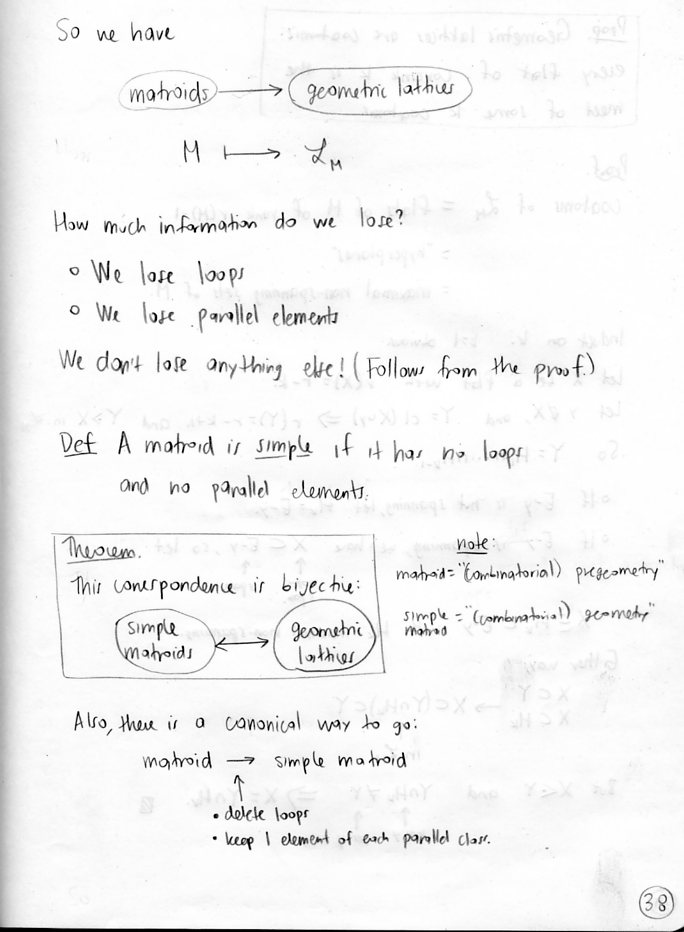 So we have
matroids → geometric lattices
M ↦ ℒ_M
How much information do we lose?
◦ We lose loops
◦ We lose parallel elements
We don't lose anything else! (Follows from the proof.)
Def A matroid is simple if it has no loops
and no parallel elements.
Theorem.
This correspondence is bijective:
simple matroids ↔ geometric lattices
note:
matroid = "(combinatorial) pregeometry"
simple matroid = "(combinatorial) geometry"
Also, there is a canonical way to go:
matroid → simple matroid
↑
• delete loops
• keep 1 element of each parallel class.
38